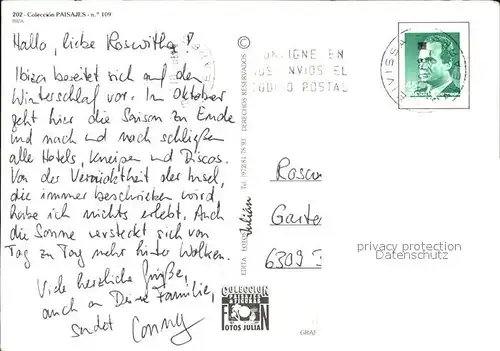 202 - Colección PAISAJES - n.º 109
IBIZA
Hallo, liebe Roswitha!
Ibiza bereitet sich auf den
Winterschlaf vor. Im Oktober
geht hier die Saison zu Ende
und nach und nach schließen
alle Hotels, Kneipen und Discos.
Von der Verrücktheit der Insel,
die immer beschrieben wird,
habe ich nichts erlebt. Auch
die Sonne versteckt sich von
Tag zu Tag mehr hinter Wolken.
Viele herzliche Grüße,
auch an Deine Familie,
sendet Conny
©
EDITA FOTOS Julián Tel. (972) 81 78 93 DERECHOS RESERVADOS
COLECCION
FOTOS JULIAN
NSIGNE EN
ENVIOS EL
O POSTAL
EVISSA
Roswi
Garte
6309
GRAF
privacy protection
Datenschutz